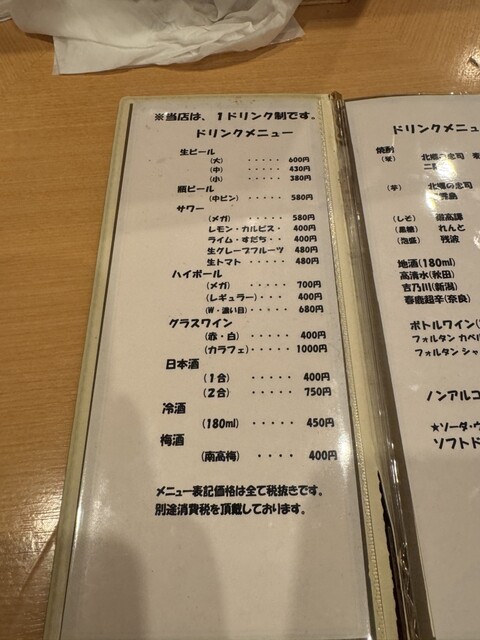 ※当店は、1ドリンク制です。
ドリンクメニュー
生ビール
(大) ・・・・・ 600円
(中) ・・・・・ 430円
(小) ・・・・・ 380円
瓶ビール
(中ビン) ・・・・・ 580円
サワー
(メガ) ・・・・・ 580円
レモン・カルピス・・・ 400円
ライム・すだち・・ 400円
生グレープフルーツ 480円
生トマト ・・・・・ 480円
ハイボール
(メガ) ・・・・・ 700円
(レギュラー)・・・ 400円
(W・濃い目)・・・・ 680円
グラスワイン
(赤・白) ・・・・・ 400円
(カラフェ) ・・・・ 1000円
日本酒
(1合) ・・・・・ 400円
(2合) ・・・・・ 750円
冷酒
(180ml) ・・・・・ 450円
梅酒
(南高梅) ・・・・ 400円
メニュー表記価格は全て税抜きです。
別途消費税を頂戴しております。
ドリンクメニュ
焼酎
北郷の忠司
(芋) 北郷の忠司
(しそ)
(黒糖) れんと
(泡盛) 残波
地酒(180ml)
高清水(秋田)
吉乃川(新潟)
春鹿超辛(奈良)
ボトルワイン
フォルタン カベル
フォルタン シャ
ノンアルコ
★ソーダ・ウ
ソフトド